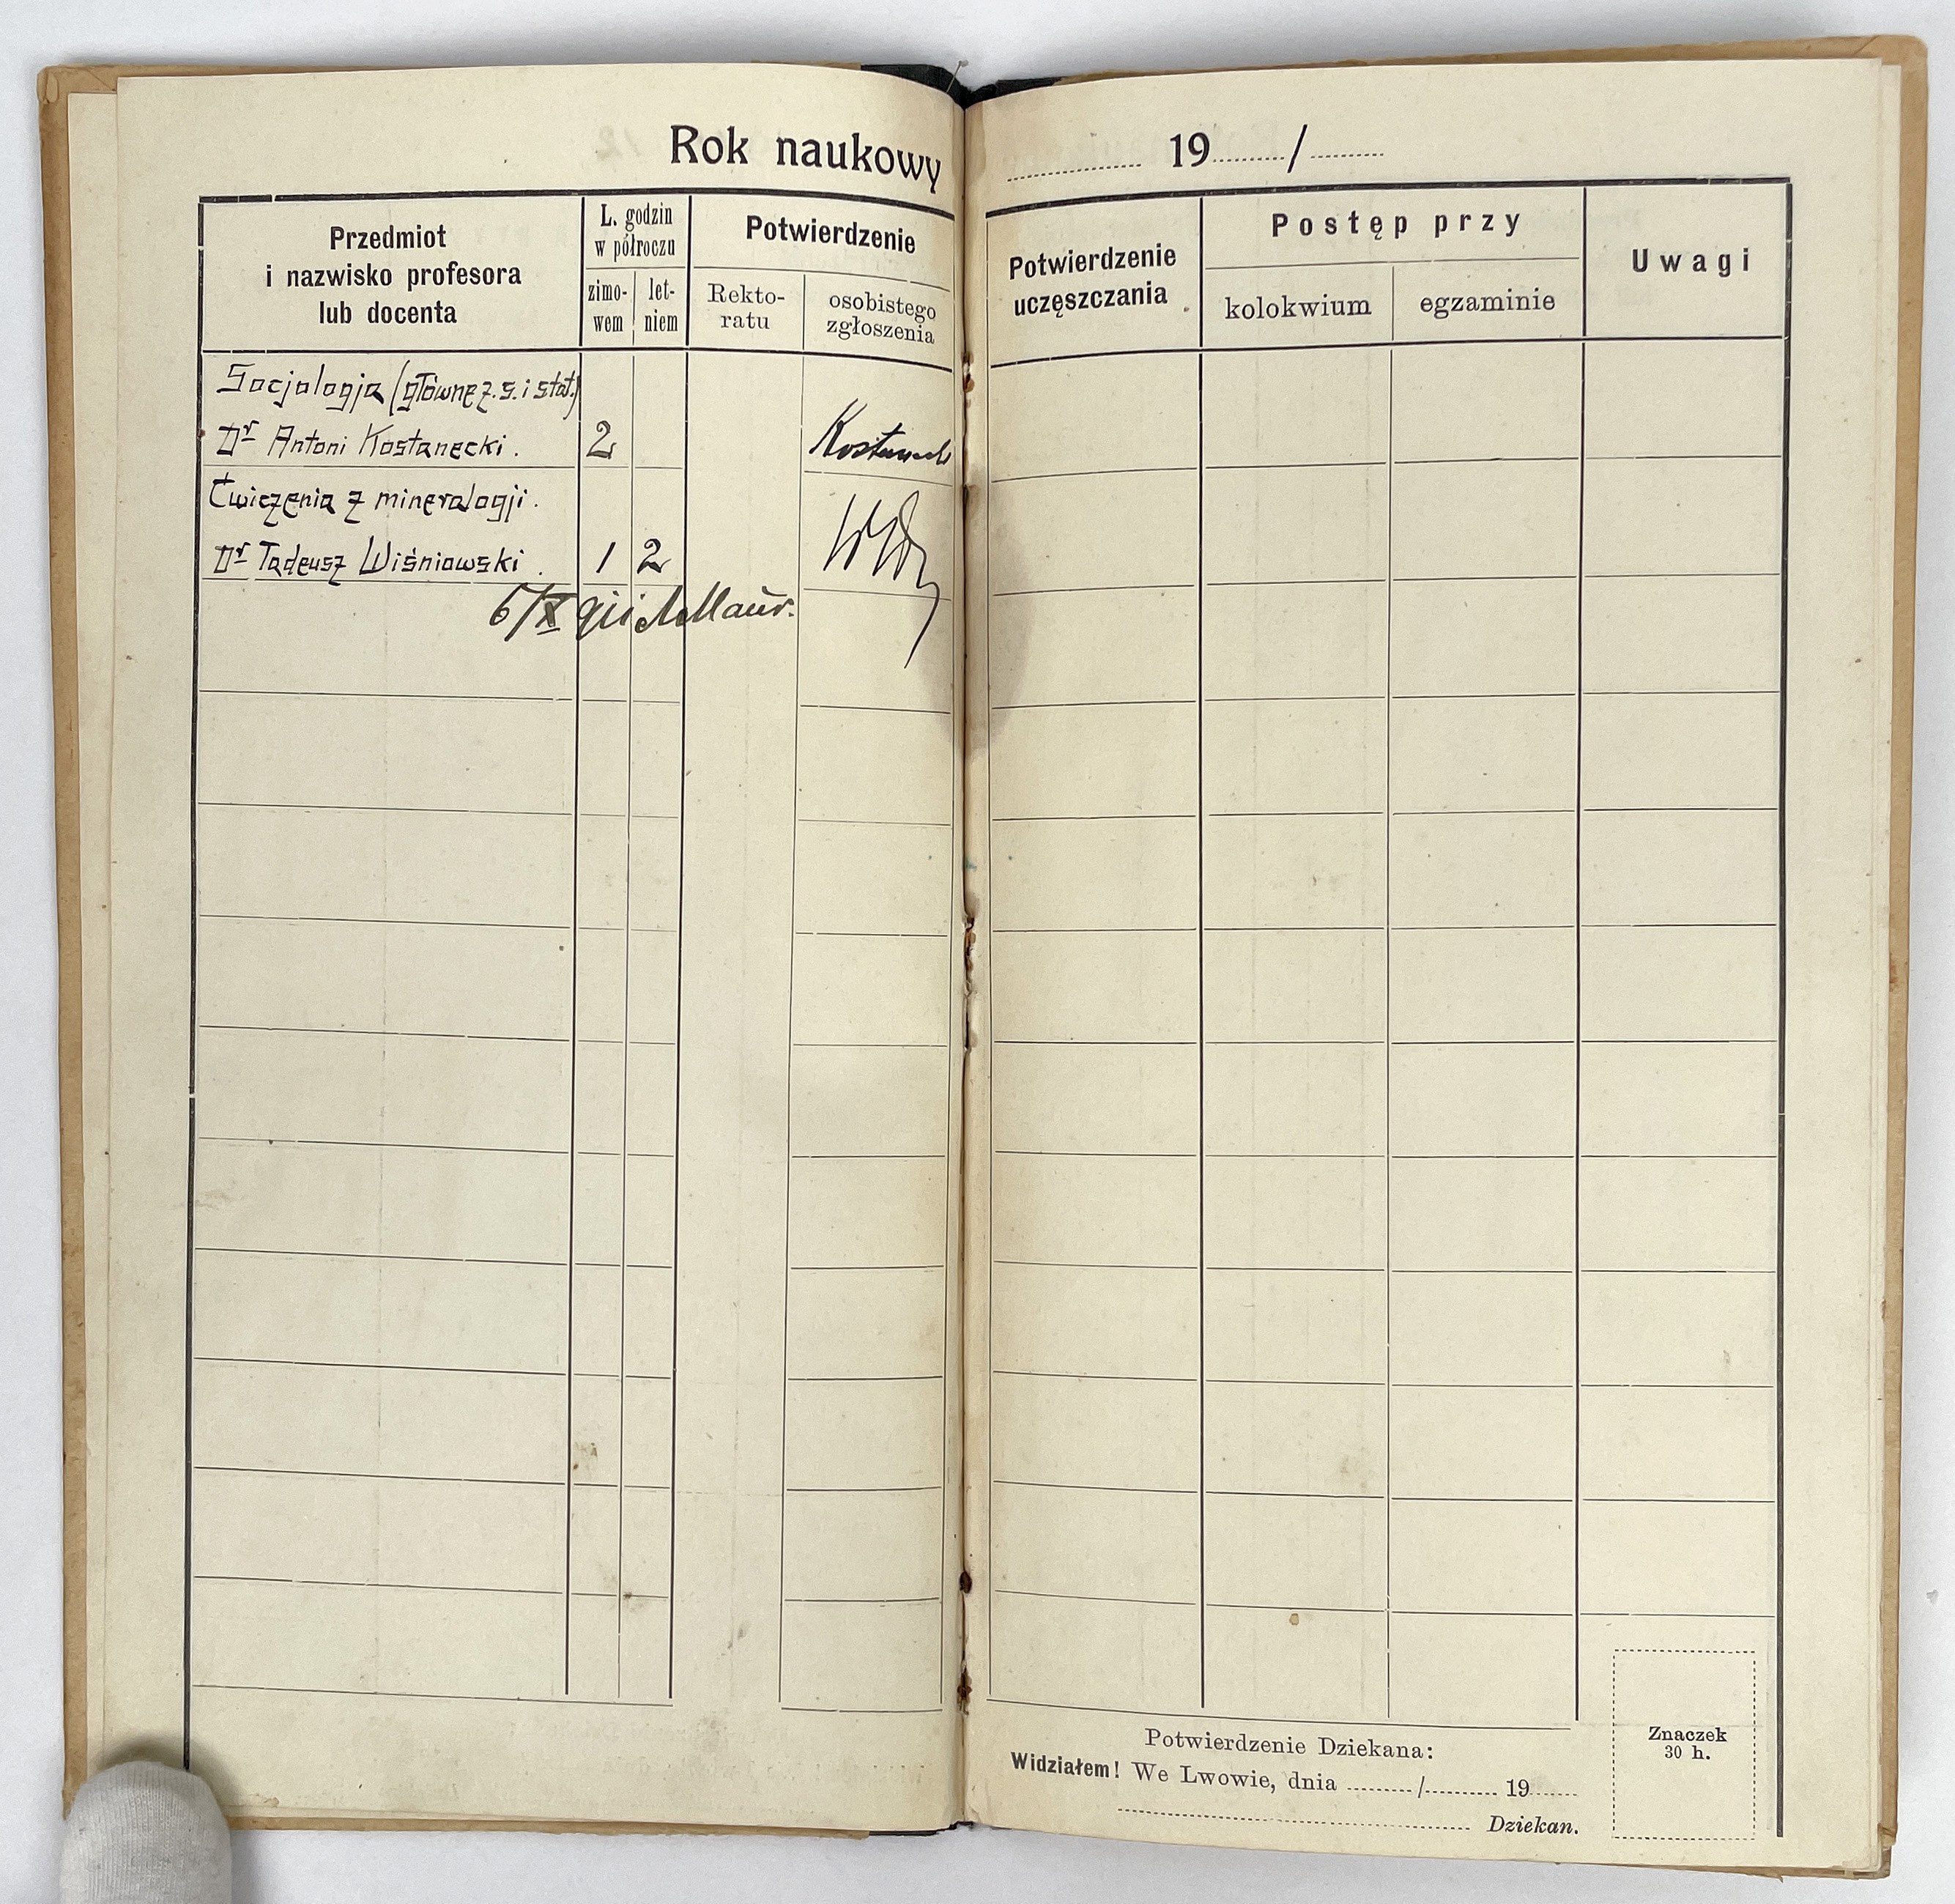 Rok naukowy 19 /
Przedmiot
i nazwisko profesora
lub docenta
L. godzin
w półroczu
zimo-
wem
let-
niem
Potwierdzenie
Rekto-
ratu
osobistego
zgłoszenia
Potwierdzenie
uczęszczania
Postęp przy
kolokwium
egzaminie
Uwagi
Socjologja (główne z. s. i stat.)
Dr Antoni Kostanecki. 2
Ćwiczenia z mineralogji.
Dr Tadeusz Wiśniowski. 1 2
6/X
Potwierdzenie Dziekana:
Widziałem! We Lwowie, dnia / 19
Dziekan.
Znaczek
30 h.